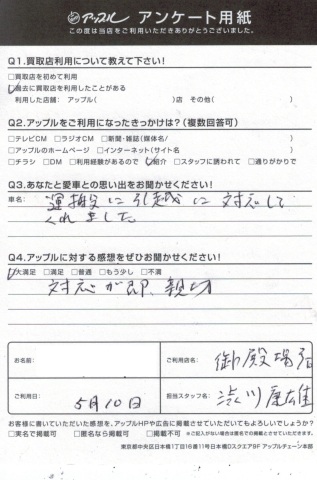 アップル アンケート用紙
この度は当店をご利用いただきありがとうございました。
Q1.買取店利用について教えて下さい!
□買取店を初めて利用
□過去に買取店を利用したことがある
利用した店舗: アップル( )店 その他( )
Q2.アップルをご利用になったきっかけは?(複数回答可)
□テレビCM □ラジオCM □新聞・雑誌(媒体名/ )
□アップルのホームページ □インターネット(サイト名 )
□チラシ □DM □利用経験があるので □紹介 □スタッフに誘われて □通りがかりで
Q3.あなたと愛車との思い出をお聞かせください!
車名: 運搬に に対応して
くれました
Q4.アップルに対する感想をぜひお聞かせください!
□大満足 □満足 □普通 □もう少し □不満
対応が即、親切
お名前:
ご利用店名: 御殿場店
ご利用日: 5月10日
担当スタッフ名: 渋川 雄
お客様に書いていただいた感想を、アップルHPや広告に掲載させていただいてもよろしいでしょうか?
□実名で掲載可 □匿名なら掲載可 □掲載不可 ※ご記入がない場合は匿名での掲載とさせていただきます。
東京都中央区日本橋1丁目16番11号日本橋Dスクエア9F アップルチェーン本部